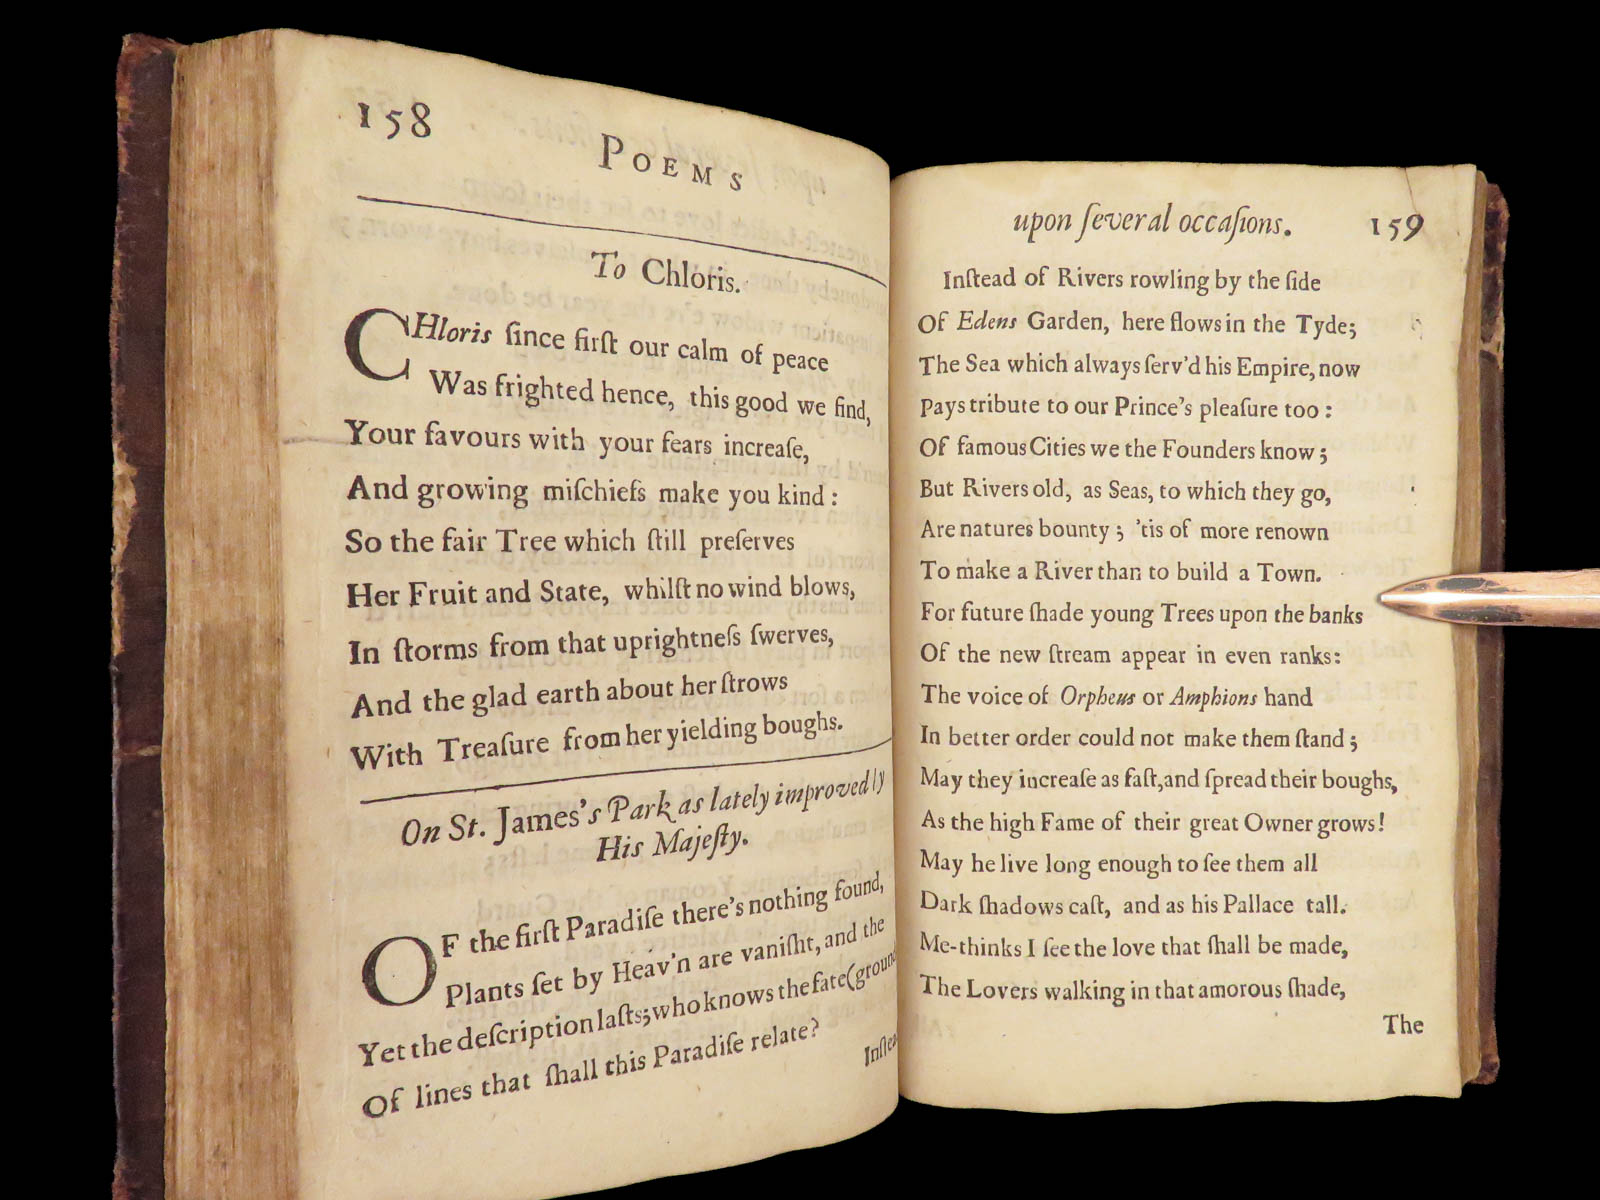 158
POEMS
To Chloris.
CHloris ſince firſt our calm of peace
Was frighted hence, this good we find,
Your favours with your fears increaſe,
And growing miſchiefs make you kind :
So the fair Tree which ſtill preſerves
Her Fruit and State, whilſt no wind blows,
In ſtorms from that uprightneſs ſwerves,
And the glad earth about her ſtrows
With Treaſure from her yielding boughs.
On St. James's Park as lately improved by
His Majeſty.
OF the firſt Paradiſe there's nothing found,
Plants ſet by Heav'n are vaniſht, and the
Yet the deſcription laſts; who knows the fate (ground
Of lines that ſhall this Paradiſe relate?
Inſtea
upon ſeveral occaſions. 159
Inſtead of Rivers rowling by the ſide
Of Edens Garden, here flows in the Tyde;
The Sea which always ſerv'd his Empire, now
Pays tribute to our Prince's pleaſure too :
Of famous Cities we the Founders know ;
But Rivers old, as Seas, to which they go,
Are natures bounty ; 'tis of more renown
To make a River than to build a Town.
For future ſhade young Trees upon the banks
Of the new ſtream appear in even ranks:
The voice of Orpheus or Amphions hand
In better order could not make them ſtand ;
May they increaſe as faſt, and ſpread their boughs,
As the high Fame of their great Owner grows!
May he live long enough to ſee them all
Dark ſhadows caſt, and as his Pallace tall.
Me-thinks I ſee the love that ſhall be made,
The Lovers walking in that amorous ſhade,
The